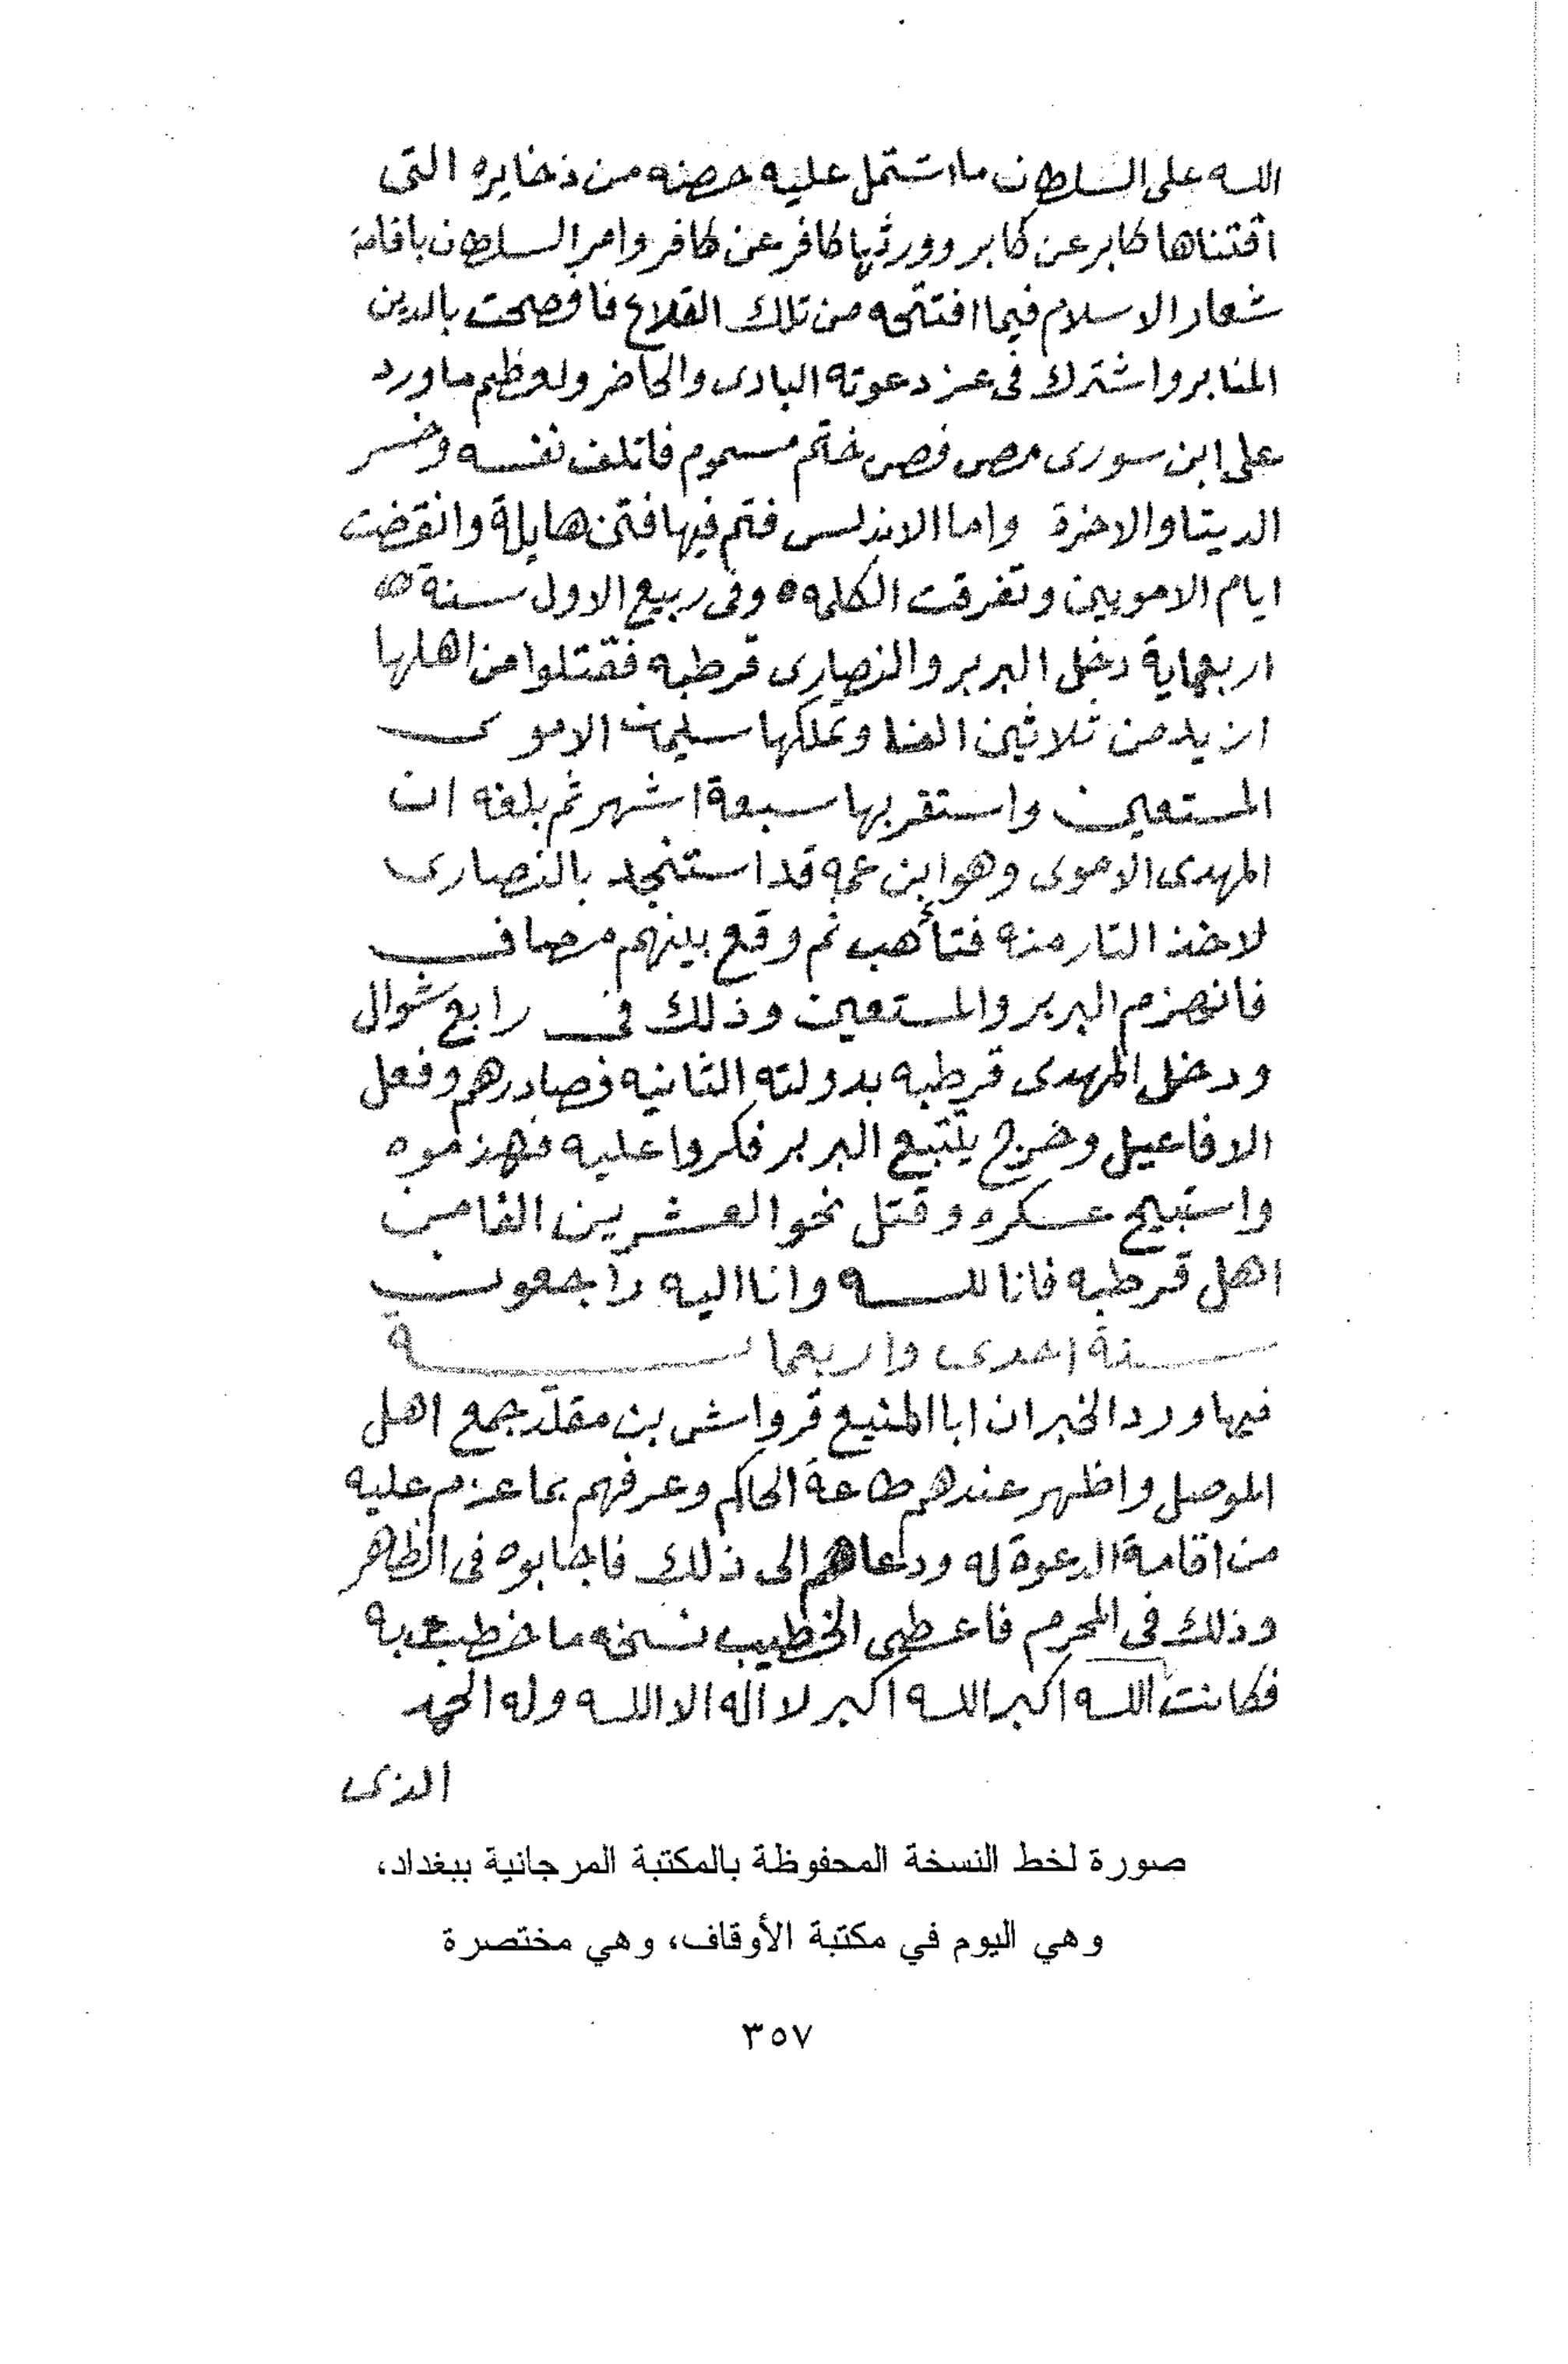 الله على السلطان ما اشتمل عليه حصنه من ذخايره التى
اقتناها كابر عن كابر وورثها كافر عن كافر وامر السلطان باقامة
شعار الاسلام فيما افتتحه من تلك القلاع فافصحت بالدين
المنابر واشترك فى عز دعوته البادى والحاضر ولعظيم ما ورد
على ابن سورى مص فص خاتم مسموم فاتلف نفسه وخسر
الدينا والاخرة واما الاندلس فتم فيها فتن هايلة وانقضت
ايام الامويين وتفرقت الكلمه ٥ وفى ربيع الاول سنة
اربعماية دخل البربر والنصارى قرطبه فقتلوا من اهلها
ازيد من ثلاثين الفا وتملكها سليمان الاموى
المستعين واستقر بها سبعة اشهر ثم بلغه ان
المهدى الاموى وهو ابن عمه قد استنجد بالنصارى
لاخذ الثار منه فتأهب ثم وقع بينهم مصاف
فانهزم البربر والمستعين وذلك فى رابع شوال
ودخل المهدى قرطبه بدولته الثانيه فصادرهم وفعل
الافاعيل وخرج يتتبع البربر فكروا عليه فهزموه
واستبيح عسكره وقتل نحو العشرين الفا من
اهل قرطبه فانا لله وانا اليه راجعون
سنة احدى واربعماية
فيها ورد الخبر ان ابا المنيع قرواش بن مقلد جمع اهل
الموصل واظهر عندهم طاعة الحاكم وعرفهم بما عزم عليه
من اقامة الدعوة له ودعاهم الى ذلك فاجابوه فى الظاهر
وذلك فى المحرم فاعطى الخطيب نسخه ما خطب به
فكانت الله اكبر الله اكبر لا اله الا الله وله الحمد
الذى
صورة لخط النسخة المحفوظة بالمكتبة المرجانية ببغداد،
وهي اليوم في مكتبة الأوقاف، وهي مختصرة
٣٥٧